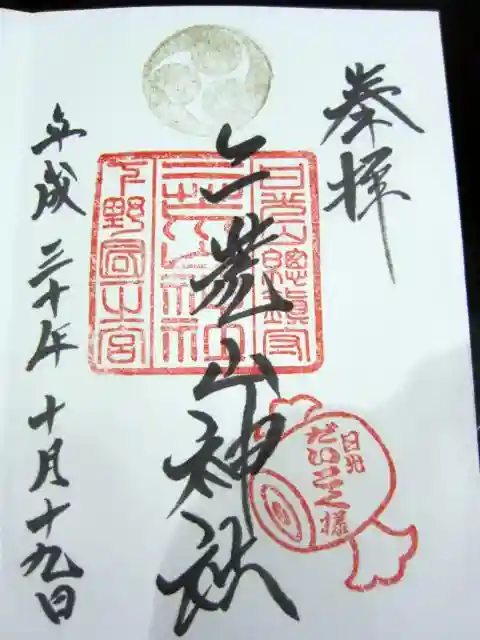 奉拝
日光山總鎮守
二荒山神社
下野国一宮
二荒山神社
日光
だいこく様
平成三十年十月十九日